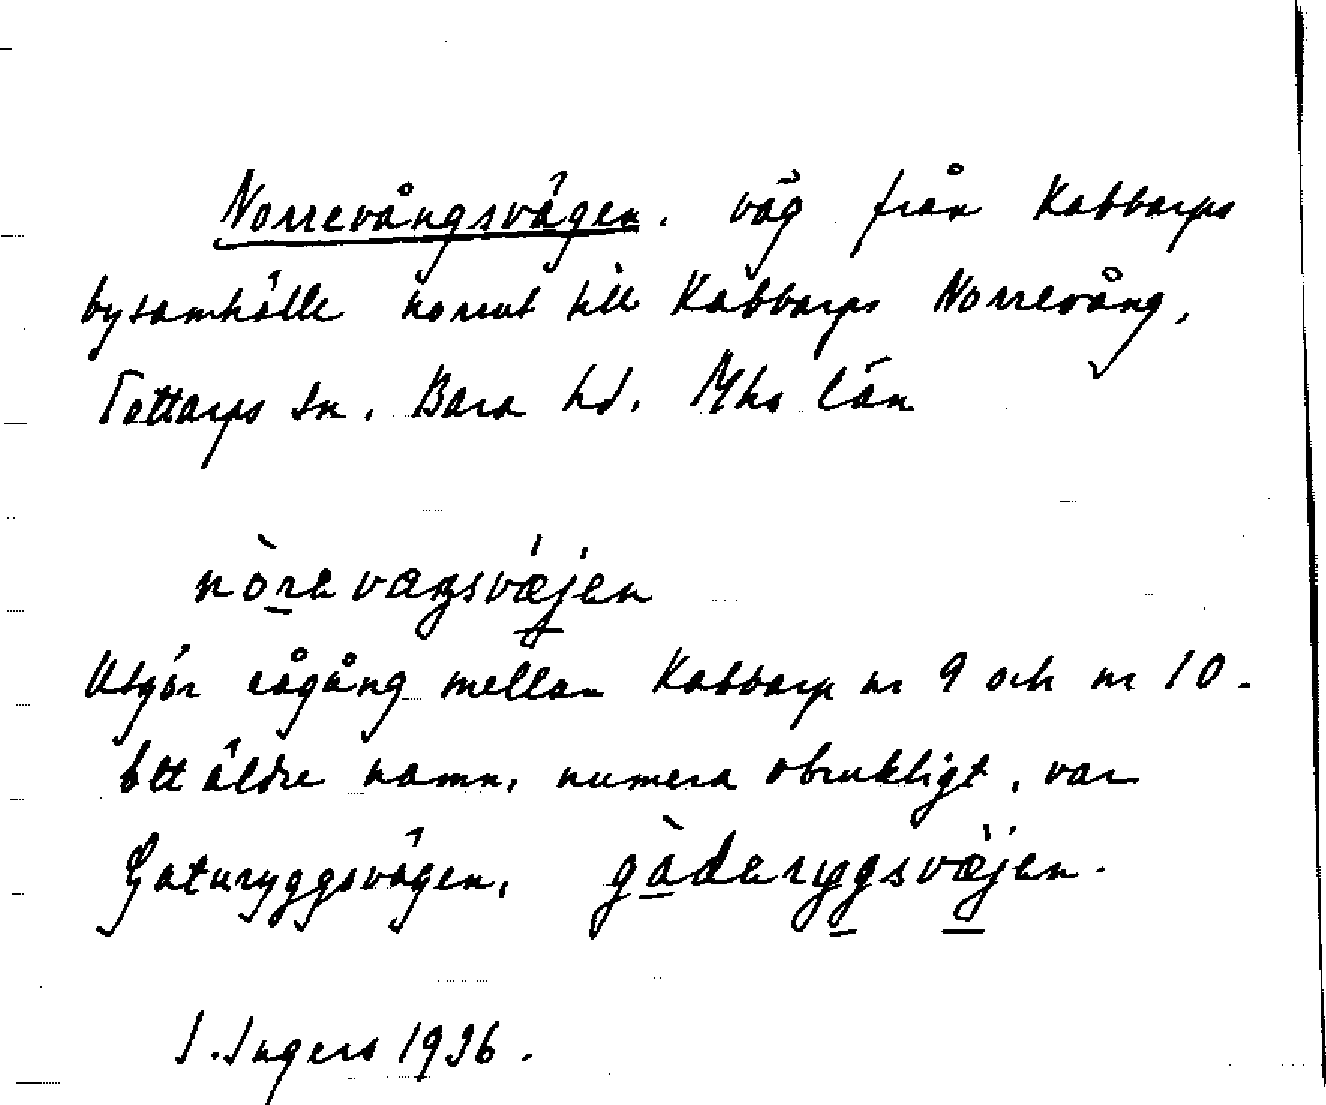 Norrevångsvägen. väg från Kabbarps
bysamhälle norrut till Kabbarps Norrevång,
Tottarps sn. Bara hd. Mhs län
nòrevaŋsvæ̀jen
Utgör rågång mellan Kabbarp nr 9 och nr 10.
Ett äldre namn, numera obrukligt, var
Gaturyggsvägen, gàderygsvæ̀jen.
I. Ingers 1936.